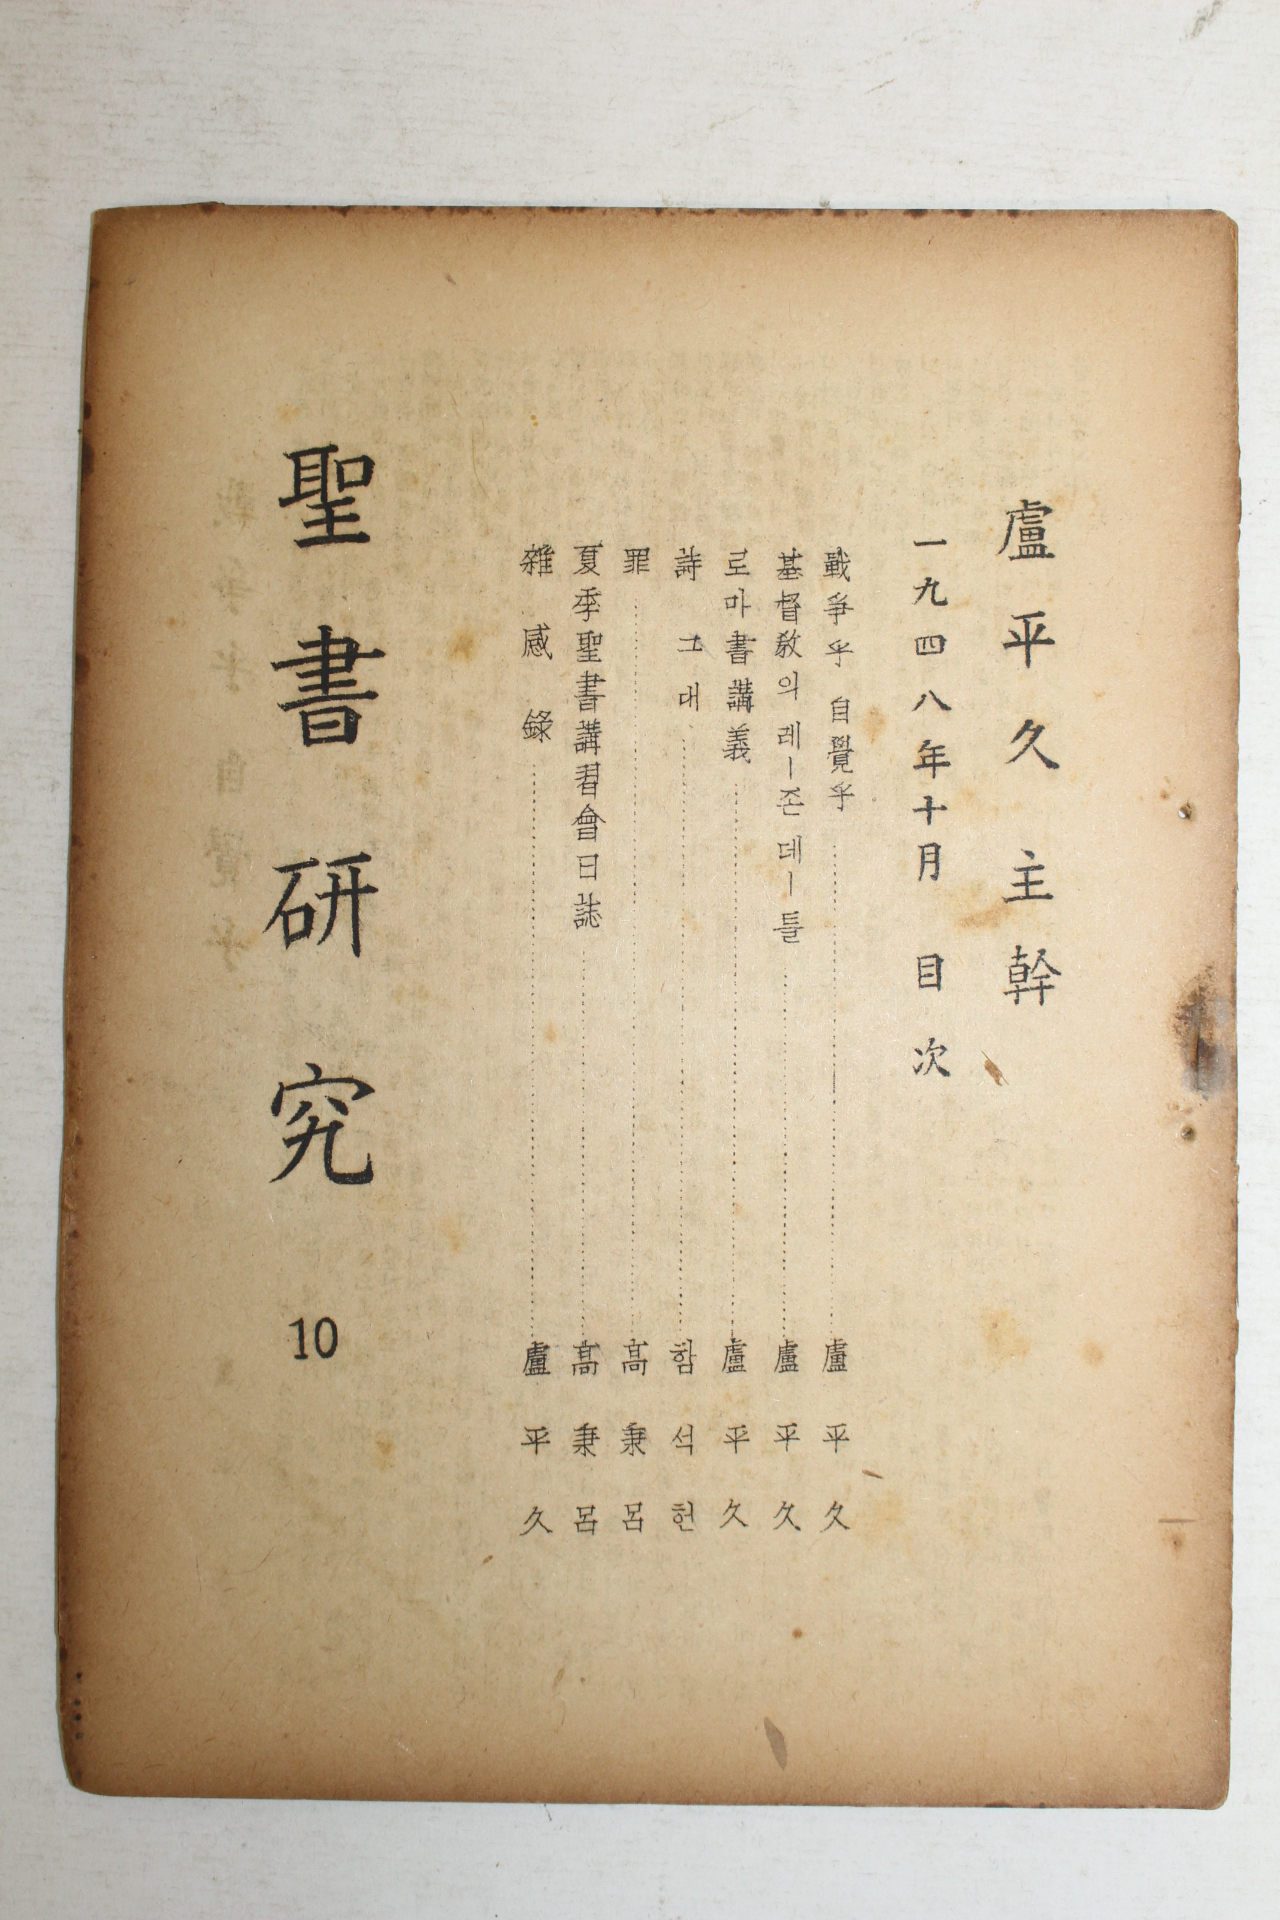 盧平久主幹
一九四八年十月 目次
戰爭乎 自覺乎 盧平久
基督敎의 레ー존데ー틀 盧平久
로마書講義 盧平久
詩 그대 함석헌
罪 高秉呂
夏季聖書講習會日誌 高秉呂
雜感錄 盧平久
聖書硏究 10